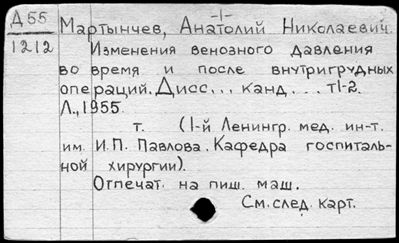 Д55
1212
-1-
Мартынчев, Анатолий Николаевич.
Изменения венозного давления
во время и после внутригрудных
операций. Дисс... канд... т1-2.
Л., 1955.
т. (1-й Ленингр. мед. ин-т.
им. И.П. Павлова. Кафедра госпиталь-
ной хирургии).
Отпечат. на пиш. маш.
См. след. карт.